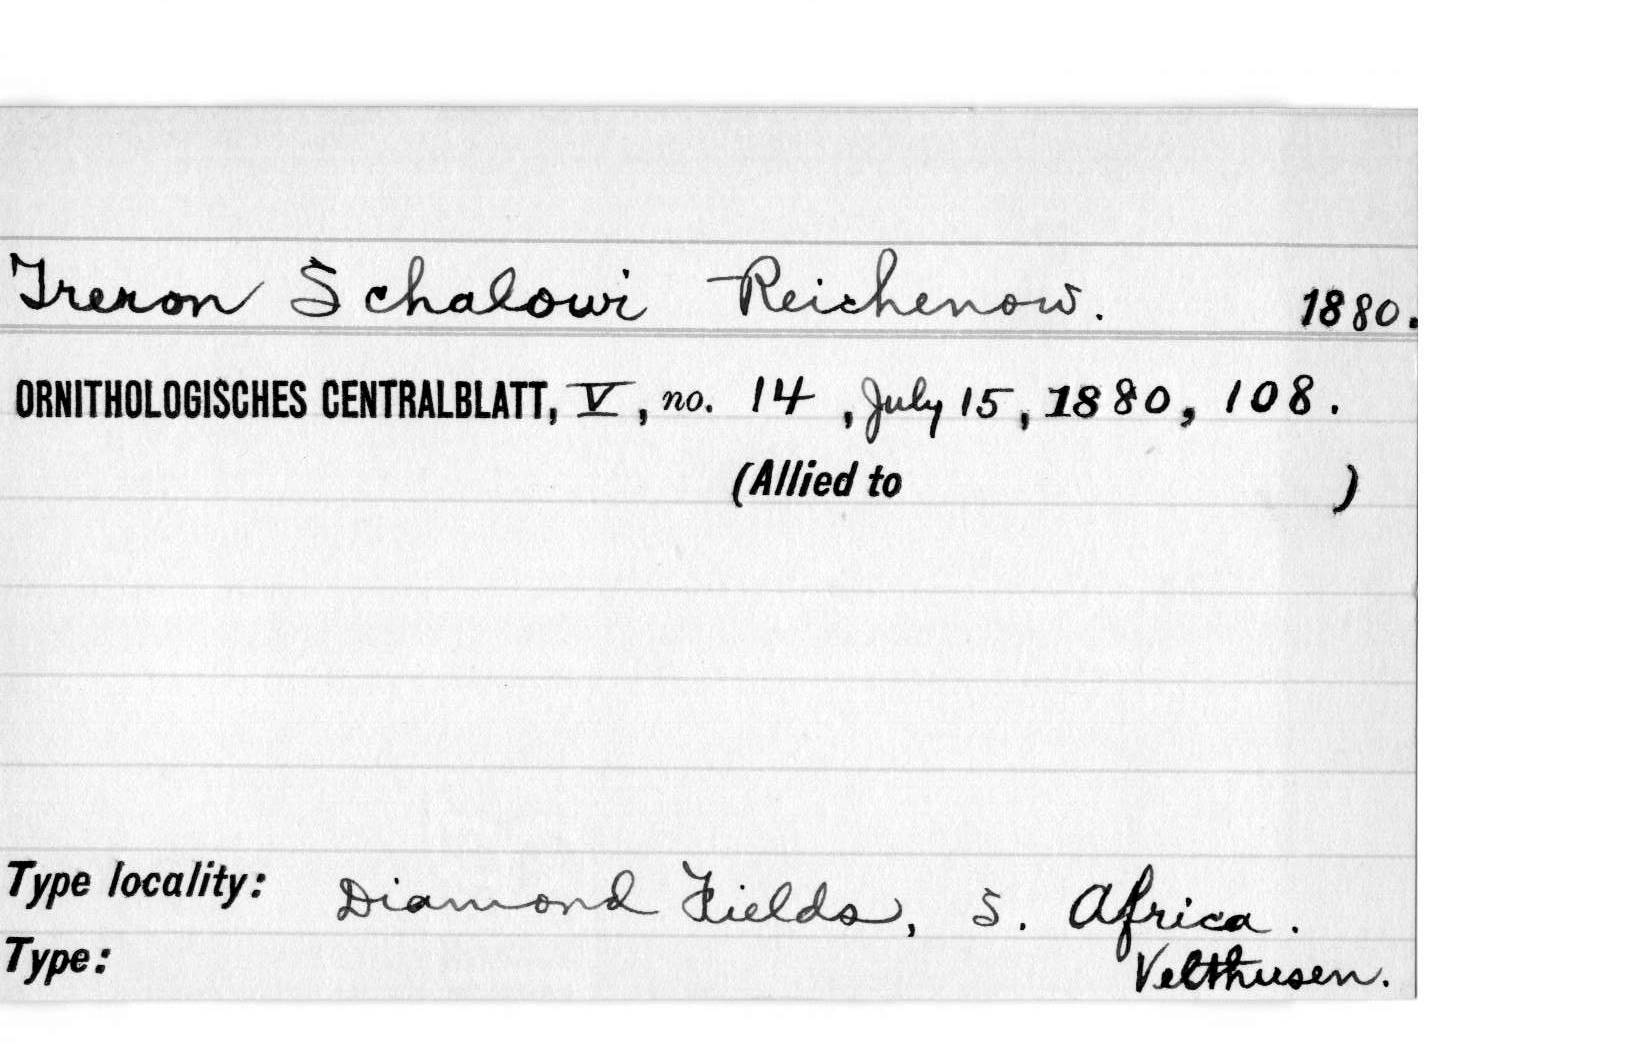 Treron Schalowi Reichenow. 1880.
ORNITHOLOGISCHES CENTRALBLATT, V, no. 14, July 15, 1880, 108.
(Allied to )
Type locality: Diamond Fields, S. Africa.
Type: Velthusen.